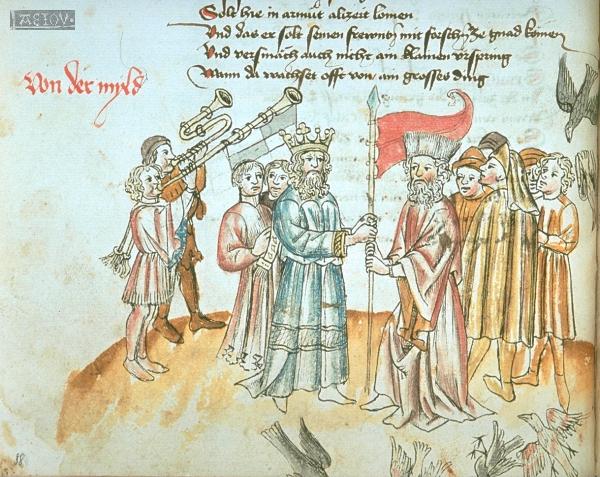 AEIOV
Solt hie in armůt alizeit komen
Vnd das er solt seinen frewntn̄ mit forsch ze gnad komen
Vnd versmäch auch nicht ain klainen vrspring
Wann da wachset offt von ain grosses ding
Von der myld
88